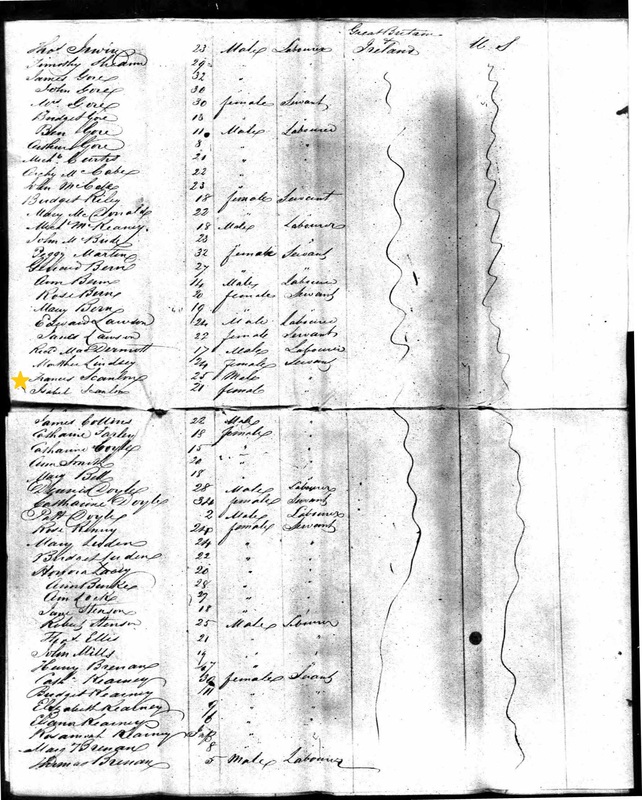 Great Britain
Thos. Irwin 23 Male Labourer & Ireland U. S
Timothy 29 " "
James Gore 32 " "
John Gore 30 " "
Mrs Gore 30 female Servant
Bridget Gore 13 " "
Ben Gore 11 Male Labourer
Arthur Gore 8 " "
Michl. Curtis 21 " "
McCabe 22 " "
McCabe 23 " "
Bridget Riley 18 female Servant
Mary McDonald 22 " "
Michl. McKearney 18 Male Labourer
John McBride 23 " "
Peggy Martin 32 female Servant
Bern 27 " "
Ann Bern 14 Male Labourer
Rose Bern 20 female Servant
Mary Bern 19 " "
Edward Lawson 24 Male Labourer
James Lawson 22 female Servant
MacDermott 17 Male Labourer
Lindsey 24 female Servant
Francis Scanlon 25 Male "
Isabel Scanlon 21 female "
James Collins 22 Male "
Catharine Farley 18 female "
Catharine Coyle 15 " "
Ann Smith 20 " "
Mary Bell 18 " "
Dennis Doyle 28 Male Labourer
Catharine Doyle 34 female Servant
Patt Doyle 2 Male Labourer
Rose Kenny 24 female Servant
Mary Leden 24 " "
Bridget Leden 22 " "
Honora Lacey 20 " "
Ann Burke 28 " "
Ann Lock 27 " "
Jane Stenson 18 " "
Robert Stenson 25 Male Labourer
Thos. Ellis 21 " "
John Mills 19 " "
Henry Brenan 17 " "
Cath. Kearney 32 female Servant
Bridget Kearney 11 " "
Elizabeth Kearney 9 " "
Kearney 6 " "
Rosannah Kearney Inf " "
Mary Brenan 8 " "
Thomas Brenan 5 Male Labourer